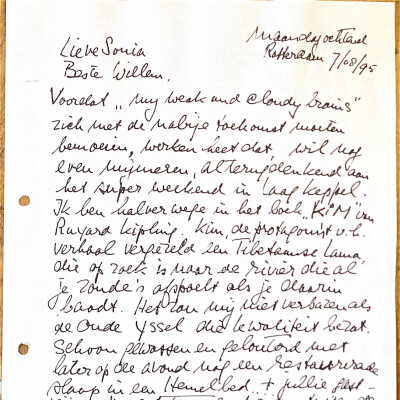 Maandagochtend
Rotterdam 7/08/95
Lieve Sonia
Beste Willem.
Voordat „my weak and cloudy brains"
zich met de nabije toekomst moeten
bemoeien, werken heet dat, wil nog
even mijmeren, al terugdenkend aan
het super weekend in Laag Keppel.
Ik ben halverwege in het boek "KiM" van
Ruyard Kipling. Kim, de protagonist v.h.
verhaal vergezeld een Tibetaanse Lama
die op zoek is naar de rivier die al
je zonde's afspoelt als je daarin
baadt. Het zou mij niet verbazen als
de Oude Yssel die kwaliteit bezat.
Schoon gewassen en gelouterd met
later op de avond nog een restaurerende
slaap in een Hemelbed ... + jullie gast-